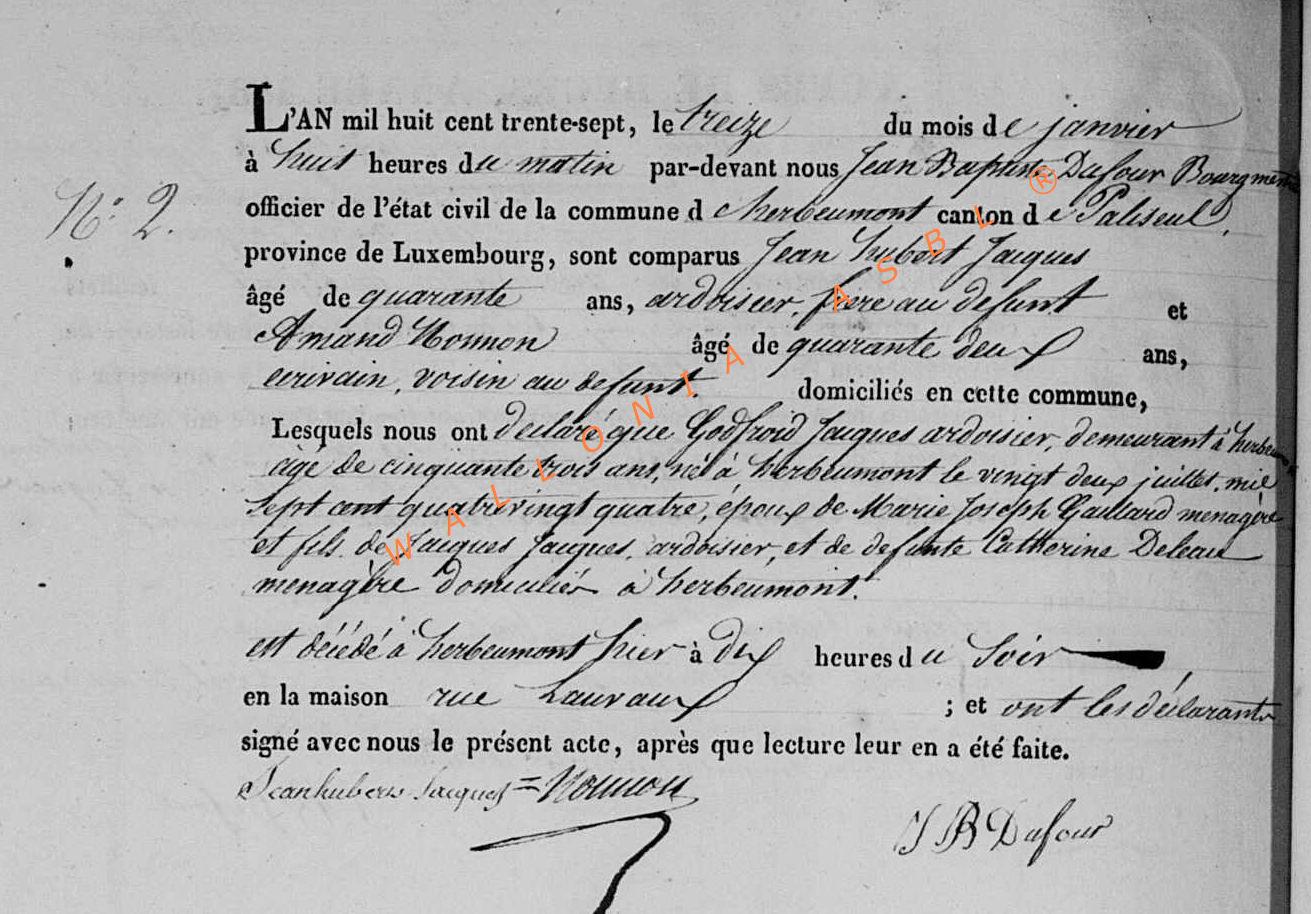 L'AN mil huit cent trente-sept, le treize du mois de janvier
à huit heures du matin par-devant nous Jean Baptiste Dufour Bourgmestre
officier de l'état civil de la commune d'herbeumont canton de Paliseul,
N° 2.
province de Luxembourg, sont comparus Jean hubert Jacques
âgé de quarante ans, ardoisier, frere au defunt et
Amand Monnon âgé de quarante deux ans,
ecrivain, voisin au defunt. domiciliés en cette commune,
Lesquels nous ont declaré que Godfroid Jacques ardoisier, demeurant à herbeumont
âgé de cinquante trois ans, né à herbeumont le vingt deux juillet, mil
sept cent quatrevingt quatre, époux de Marie Joseph Gaillard menagère
et fils de Jacques Jacques, ardoisier, et de defunte Catherine Deleau
menagère domiciliés à herbeumont.
est décédé à herbeumont hier à dix heures du Soir
en la maison rue Lauvaux ; et ont les déclarants
signé avec nous le présent acte, après que lecture leur en a été faite.
Jean hubert Jacques = Monnon
J B Dufour
WALLONIA ASBL ®